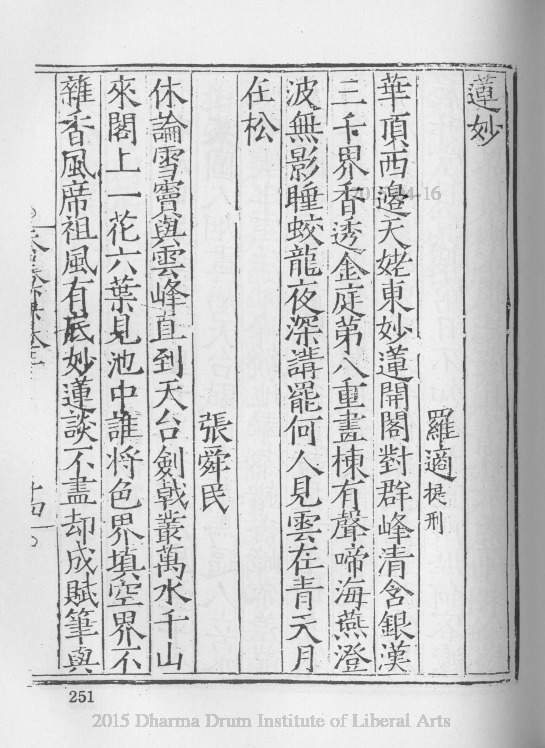 蓮妙
羅適提刑
華頂西邉天姥東妙蓮開閣對群峰清含銀漢
三千界香透金庭第八重畫棟有聲啼海燕澄
波無影睡蛟龍夜深講罷何人見雲在青天月
在松
張舜民
休論雪竇與雲峰直到天台劍戟叢萬水千山
來閣上一花六葉見池中誰将色界填空界不
雜香風席祖風有底妙蓮談不盡却成賦筆與
251
2015 Dharma Drum Institute of Liberal Arts